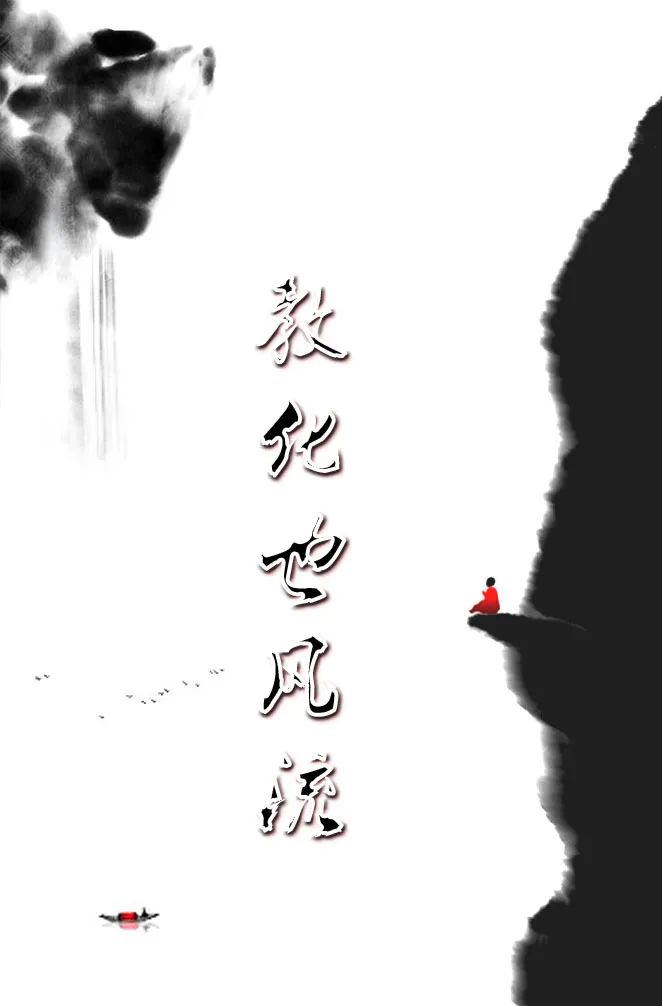 教化也风流